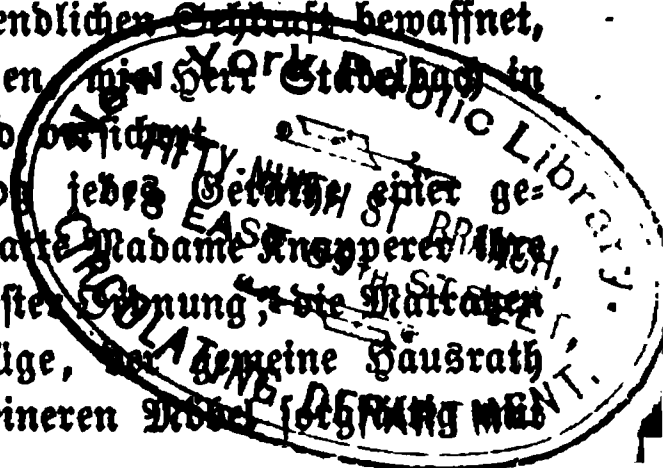 endlichen Sehkraft bewaffnet,
en, wie Herr Stadelbach in
versichert
jedes Geräthe einer ge-
Madame Knapperer ihre
Ordnung, die Matratzen
üge, der gemeine Hausrath
eineren Möbel sorgfältig mit
New York Public Library.
FIFTY-NINTH ST. BRANCH,
EAST 59TH STREET,
CIRCULATING DEPARTMENT.